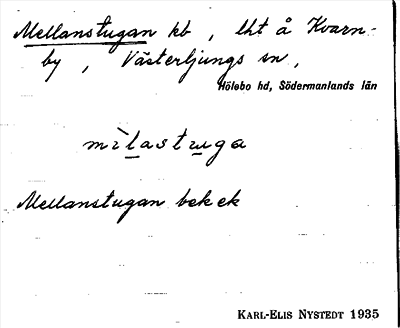 Mellanstugan kb, lht å Kvarn-
by, Västerljungs sn,
Hölebo hd, Södermanlands län
mìlastuga
Mellanstugan bekek
KARL-ELIS NYSTEDT 1935